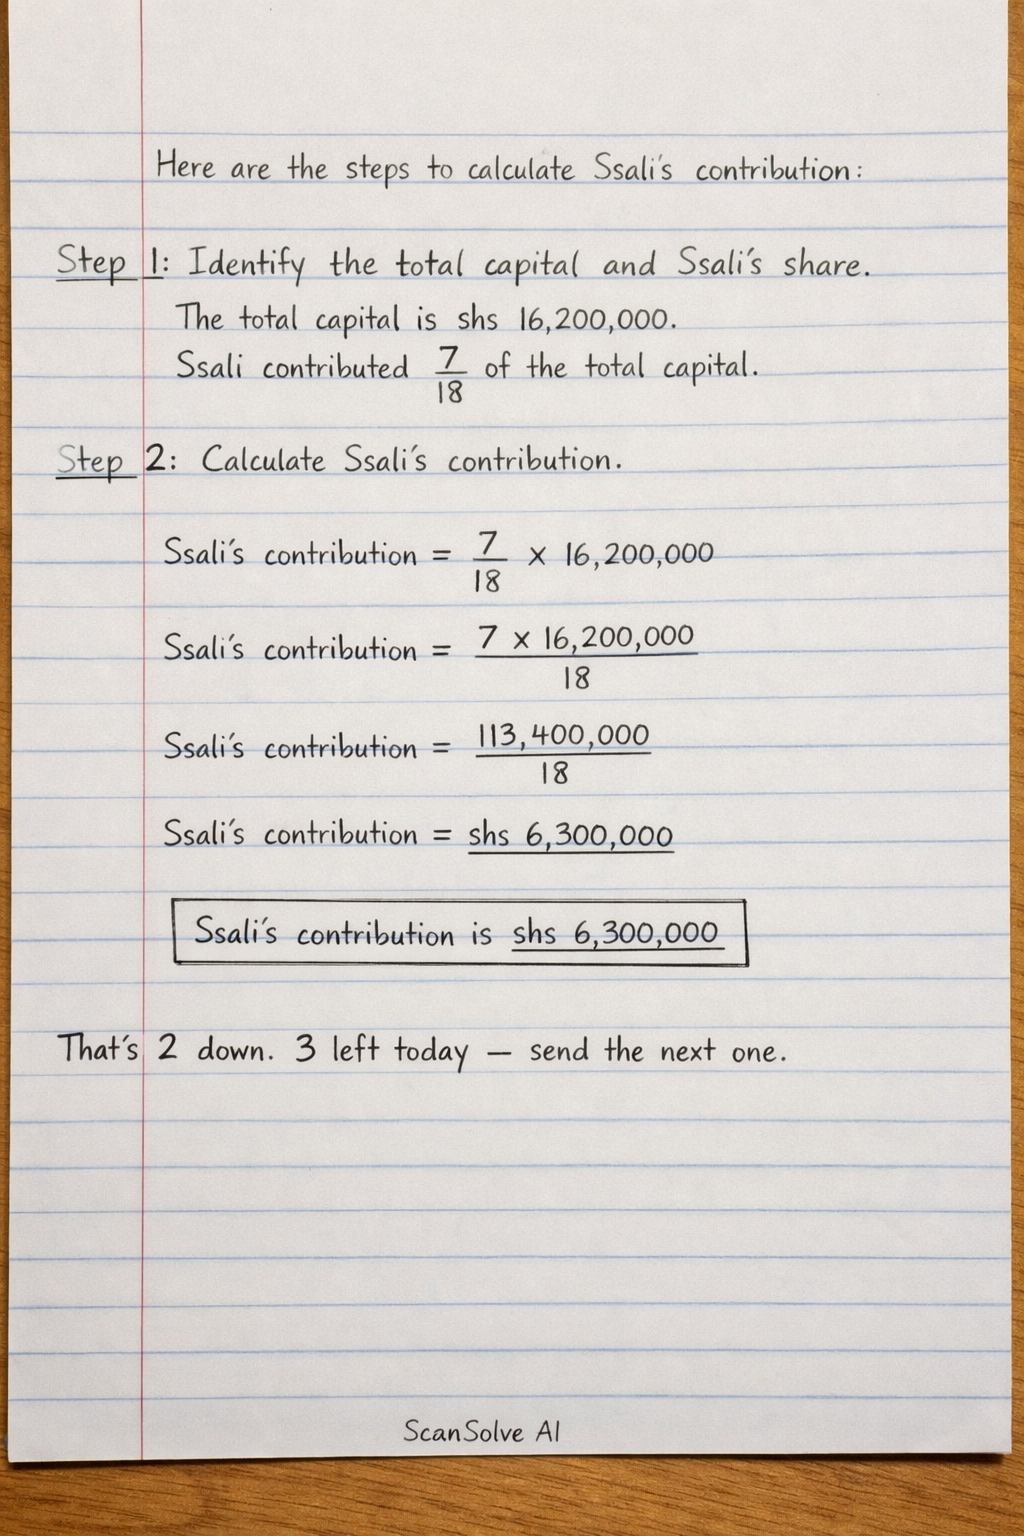 Here are the steps to calculate Ssali's contribution:
Step 1: Identify the total capital and Ssali's share.
The total capital is shs 16,200,000.
Ssali contributed 7/18 of the total capital.
Step 2: Calculate Ssali's contribution.
Ssali's contribution = 7/18 × 16,200,000
Ssali's contribution = 7 × 16,200,000 / 18
Ssali's contribution = 113,400,000 / 18
Ssali's contribution = shs 6,300,000
Ssali's contribution is shs 6,300,000
That's 2 down. 3 left today — send the next one.
ScanSolve AI